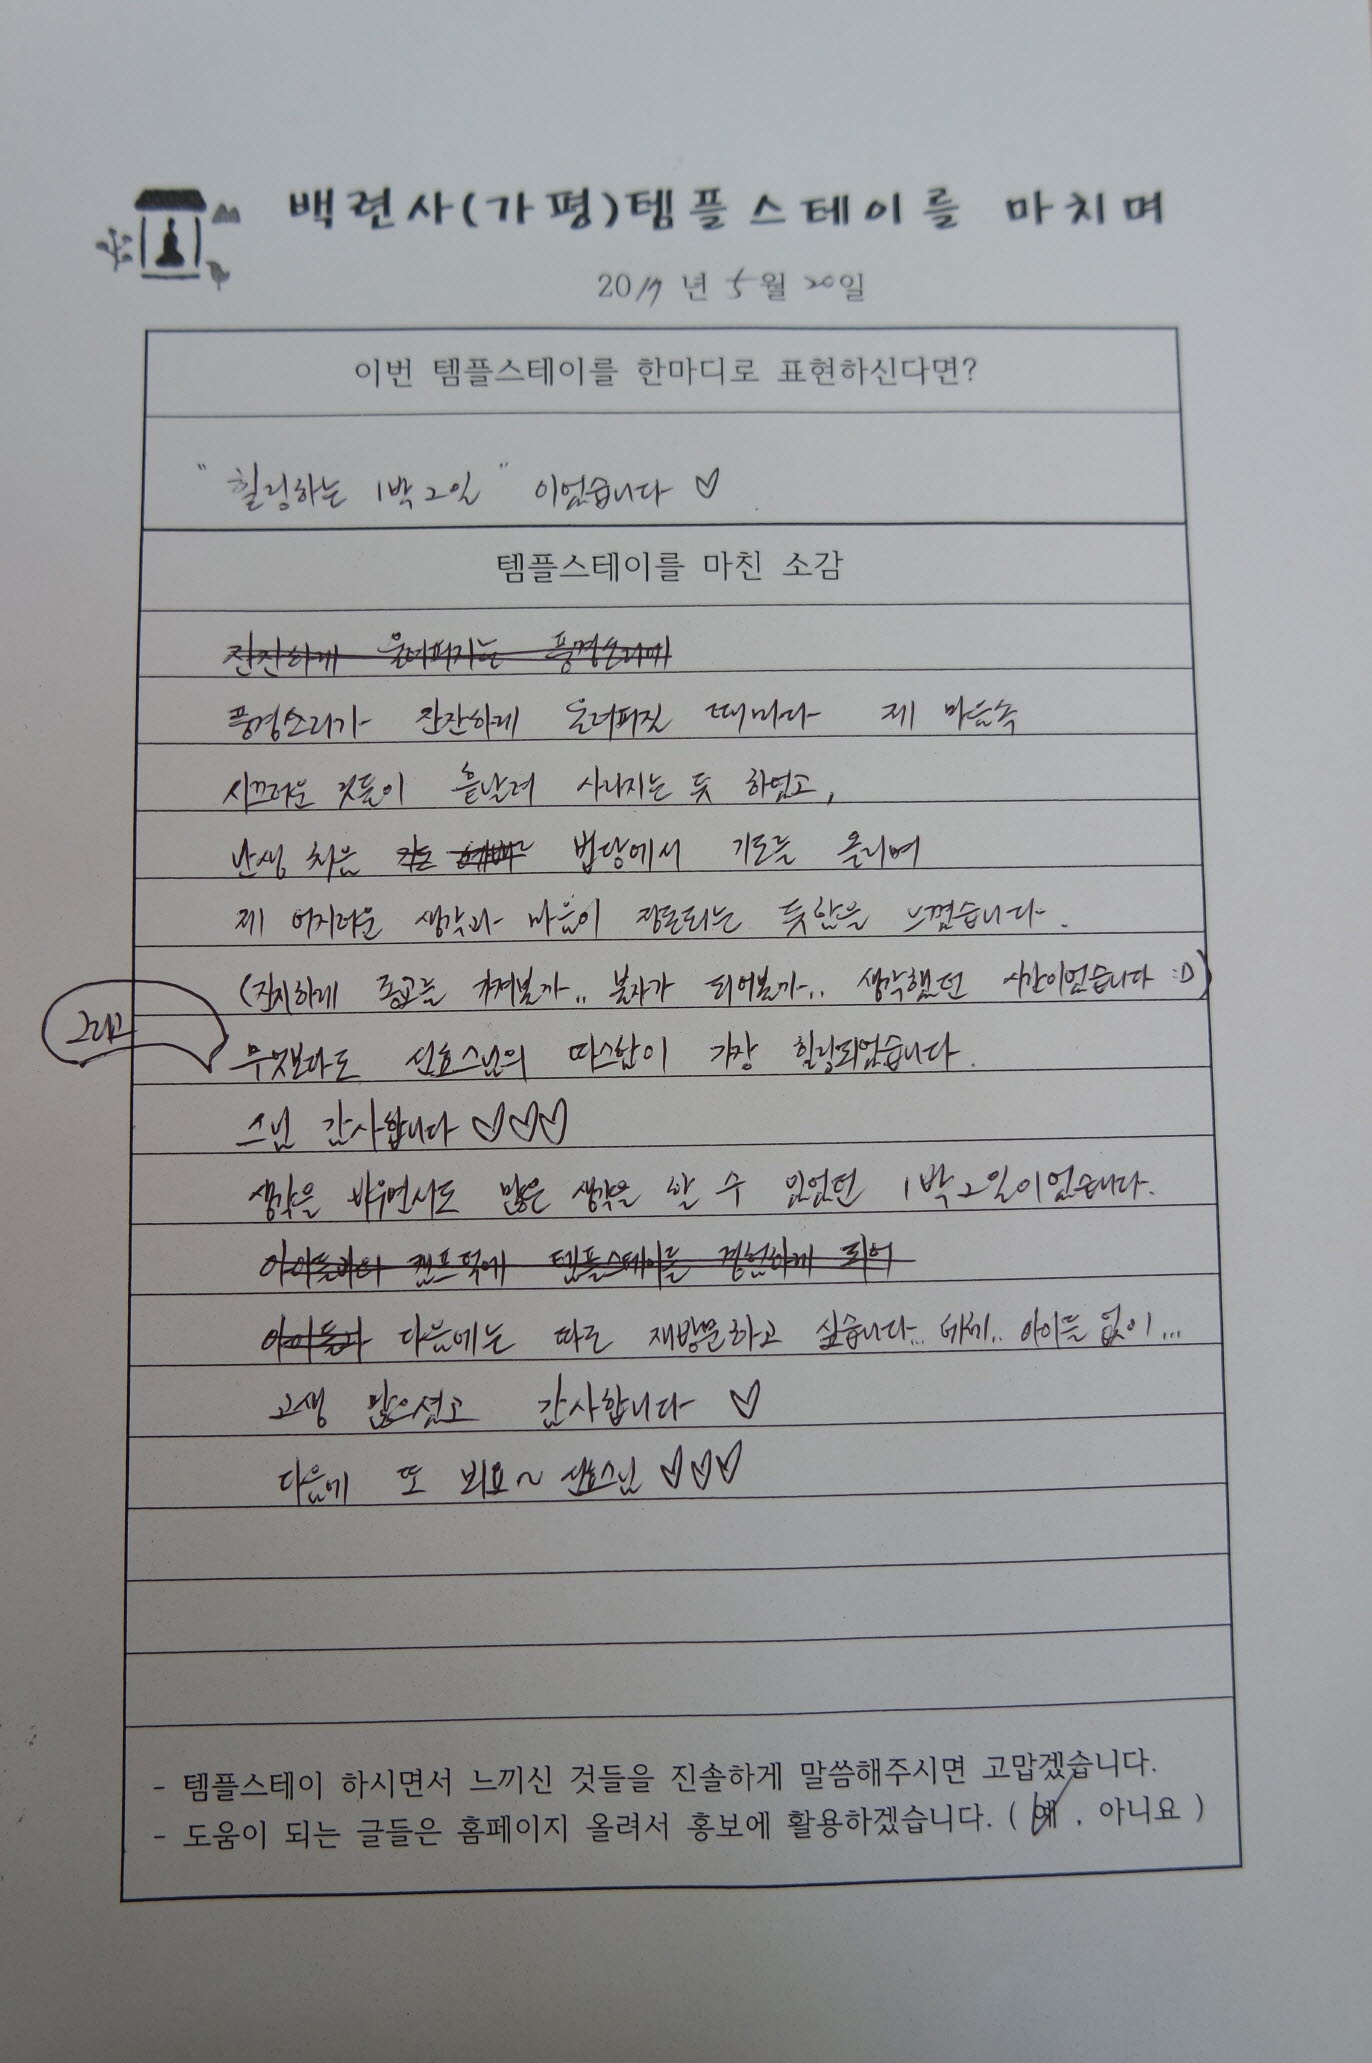 백련사(가평)템플스테이를 마치며
2017년 5월 20일
이번 템플스테이를 한마디로 표현하신다면?
"힐링하는 1박2일" 이었습니다 ♡
템플스테이를 마친 소감
잔잔하게 울려퍼지는 풍경소리에
풍경소리가 잔잔하게 울려퍼질 때마다 제 마음속
시끄러운 것들이 흩날려 사라지는 듯 하였고,
난생 처음 법당에서 기도를 올리며
제 어지러운 생각과 마음이 정돈되는 듯함을 느꼈습니다.
(진지하게 종교를 가져볼까.. 불자가 되어볼까.. 생각했던 시간이었습니다 :D)
그리고
무엇보다도 선효스님의 따스함이 가장 힐링되었습니다.
스님 감사합니다 ♡♡♡
생각을 비우면서도 많은 생각을 할 수 있었던 1박2일이었습니다.
아이들과의 캠프덕에 템플스테이를 경험하게 되어
아이들과 다음에는 따로 재방문하고 싶습니다... 헤헤.. 아이들 없이...
고생 많으셨고 감사합니다 ♡
다음에 또 뵈요~ 선효스님 ♡♡♡
- 템플스테이 하시면서 느끼신 것들을 진솔하게 말씀해주시면 고맙겠습니다.
- 도움이 되는 글들은 홈페이지 올려서 홍보에 활용하겠습니다. ( 예 , 아니요 )